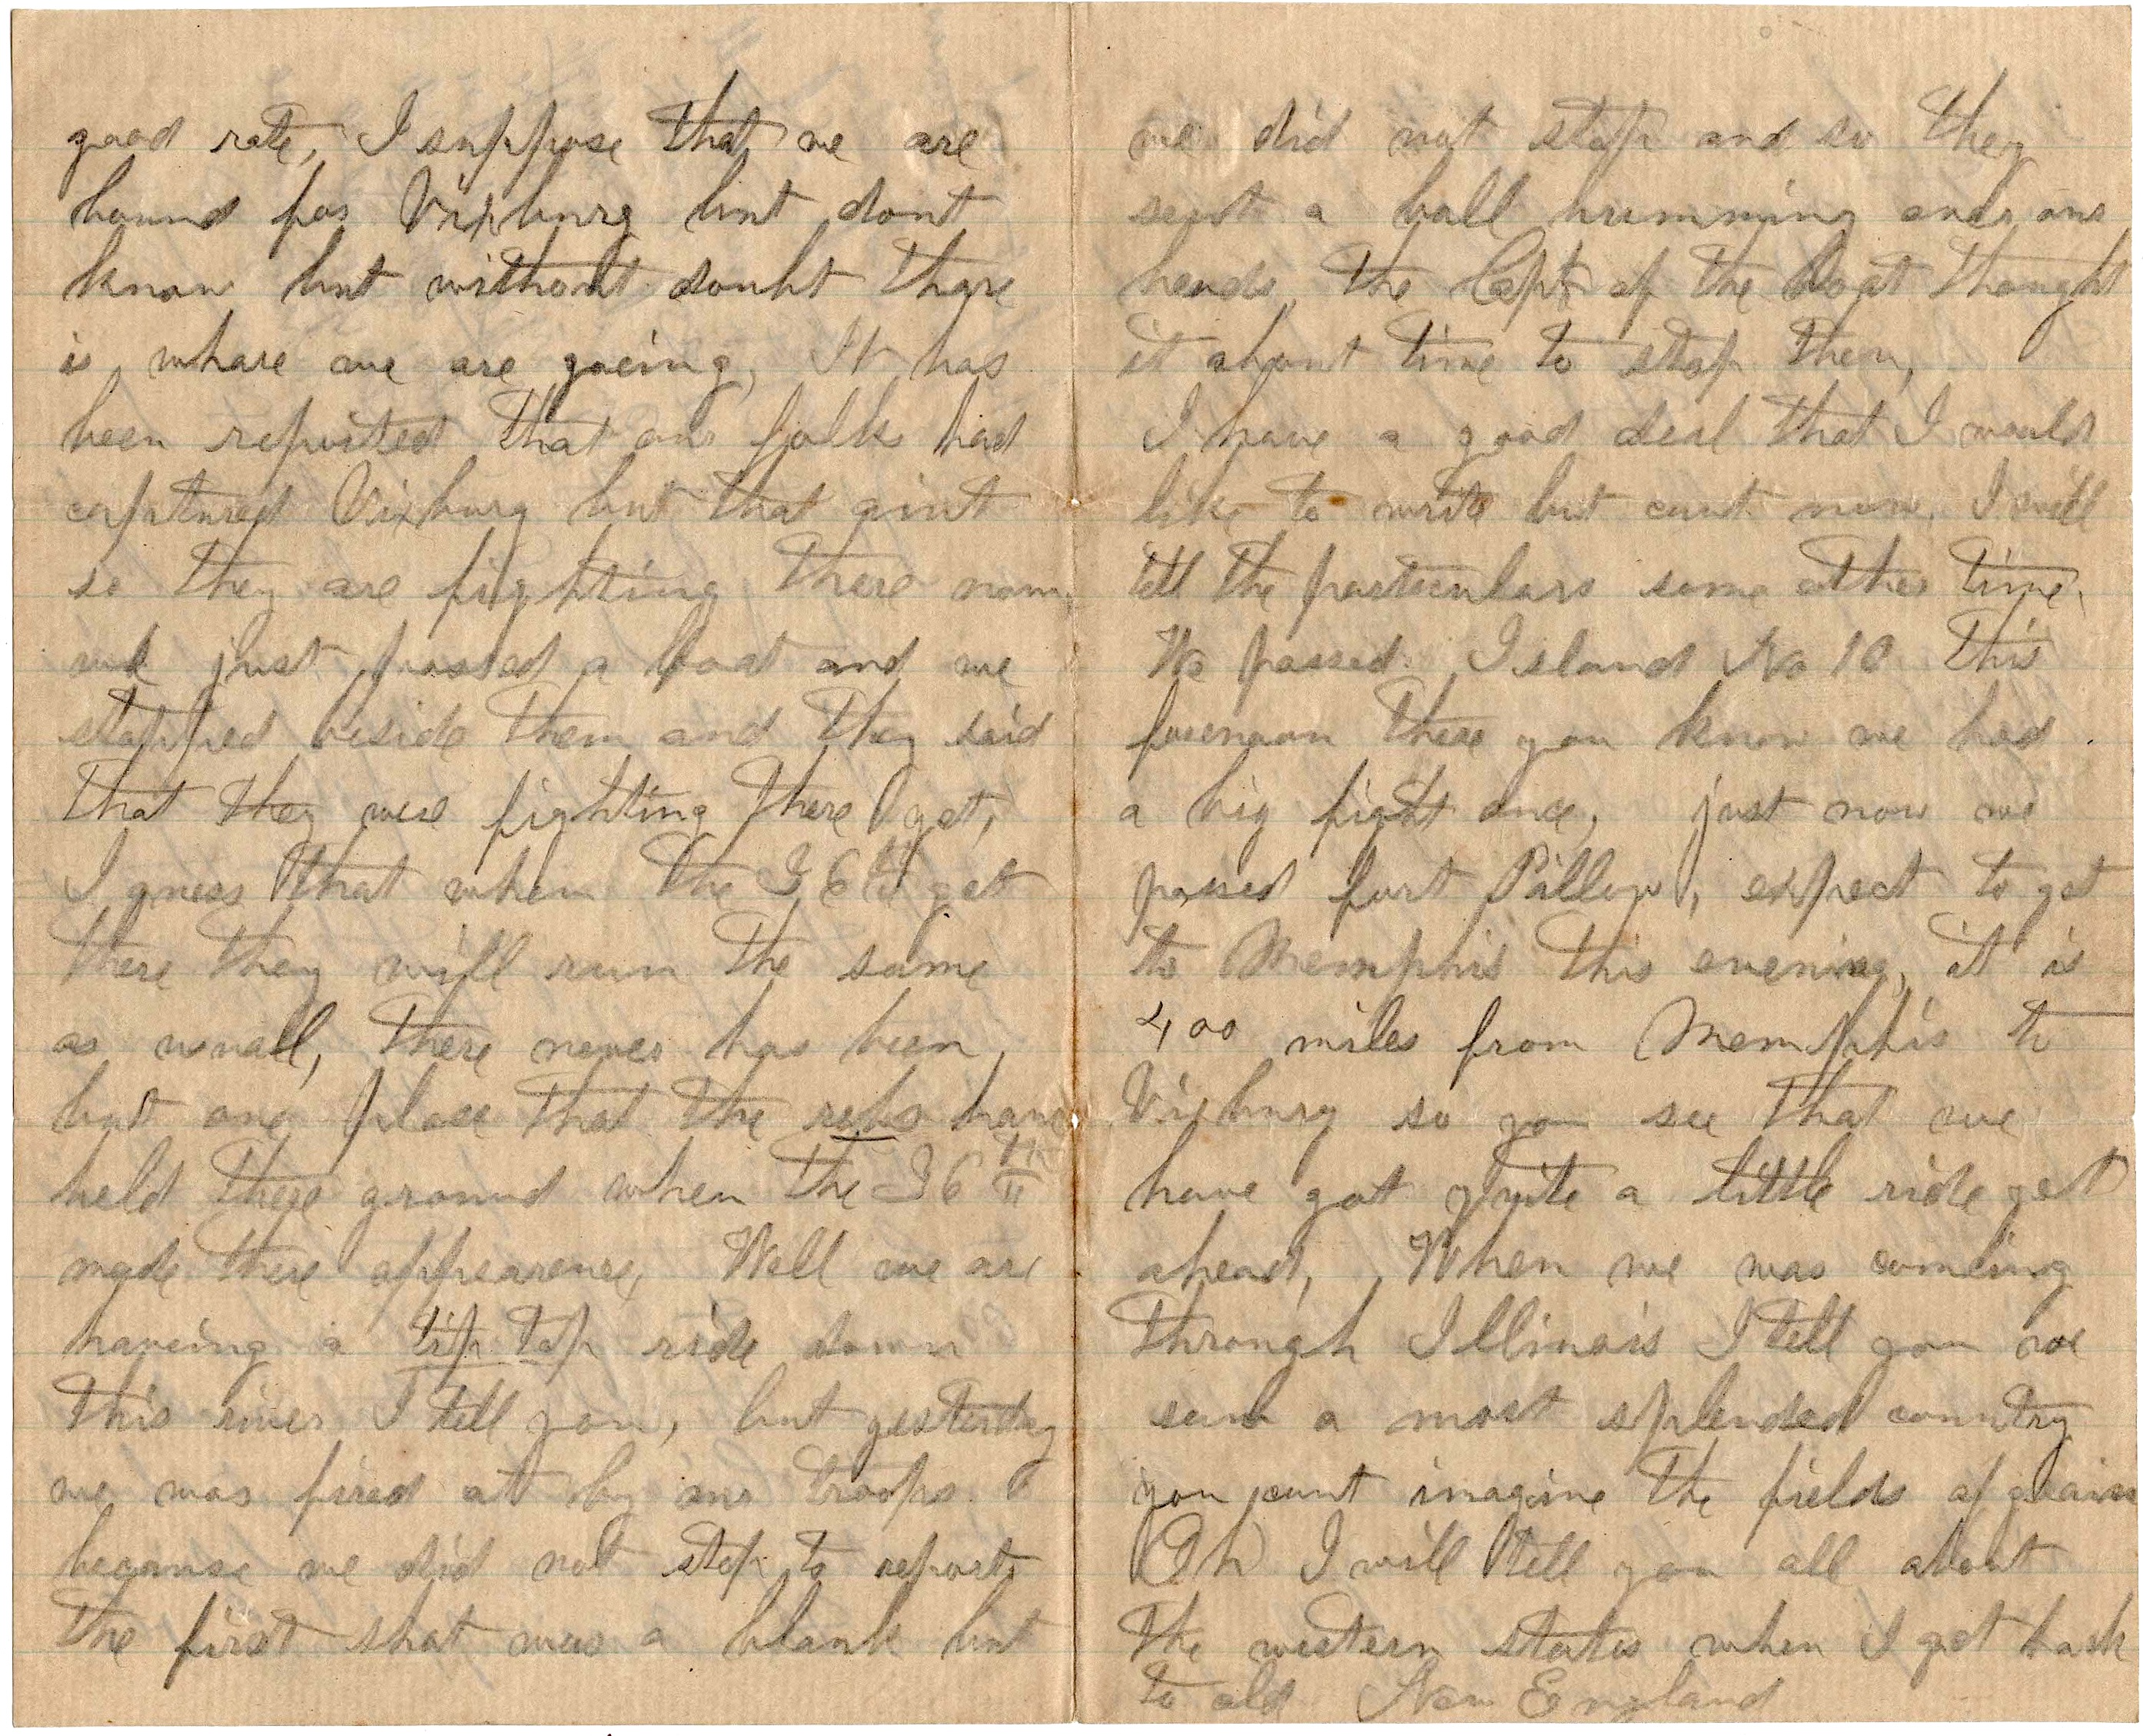 good rate, I suppose that we are
bound for Vixburg but dont
know but without doubt thare
is whare we are goeing, It has
been reported that our folk had
captured Vixburg but that aint
so they are fighting there now,
we just passed a boat and we
stopped beside them and they said
that they were fighting there yet,
I guess that when the 36th get
there they will run the same
as usuall, there never has been
but one place that the rebs have
held there ground when the 36th
made there appearence, Well we are
haveing a tip top ride down
this river I tell you, but yesterday
we was fired at by our troops
because we did not stop to report
the first shot was a blank but
we did not stop and so they
sent a ball humming over our
heads, the Capt of the Boat thought
it about time to stop then,
I have a good deal that I would
like to write but cant now, I will
tell the particulars some other time.
We passed Island No 10 this
forenoon there you know we had
a big fight once, just now we
passed fort Pillow, expect to get
to Memphis this evening, it is
400 miles from Memphis to
Vixburg so you see that we
have got quite a little ride yet
ahead, When we was comeing
through Illinois I tell you we
saw a most splended country
you cant imagine the fields of grain
Oh I will tell you all about
the western states when I get back
to old New England